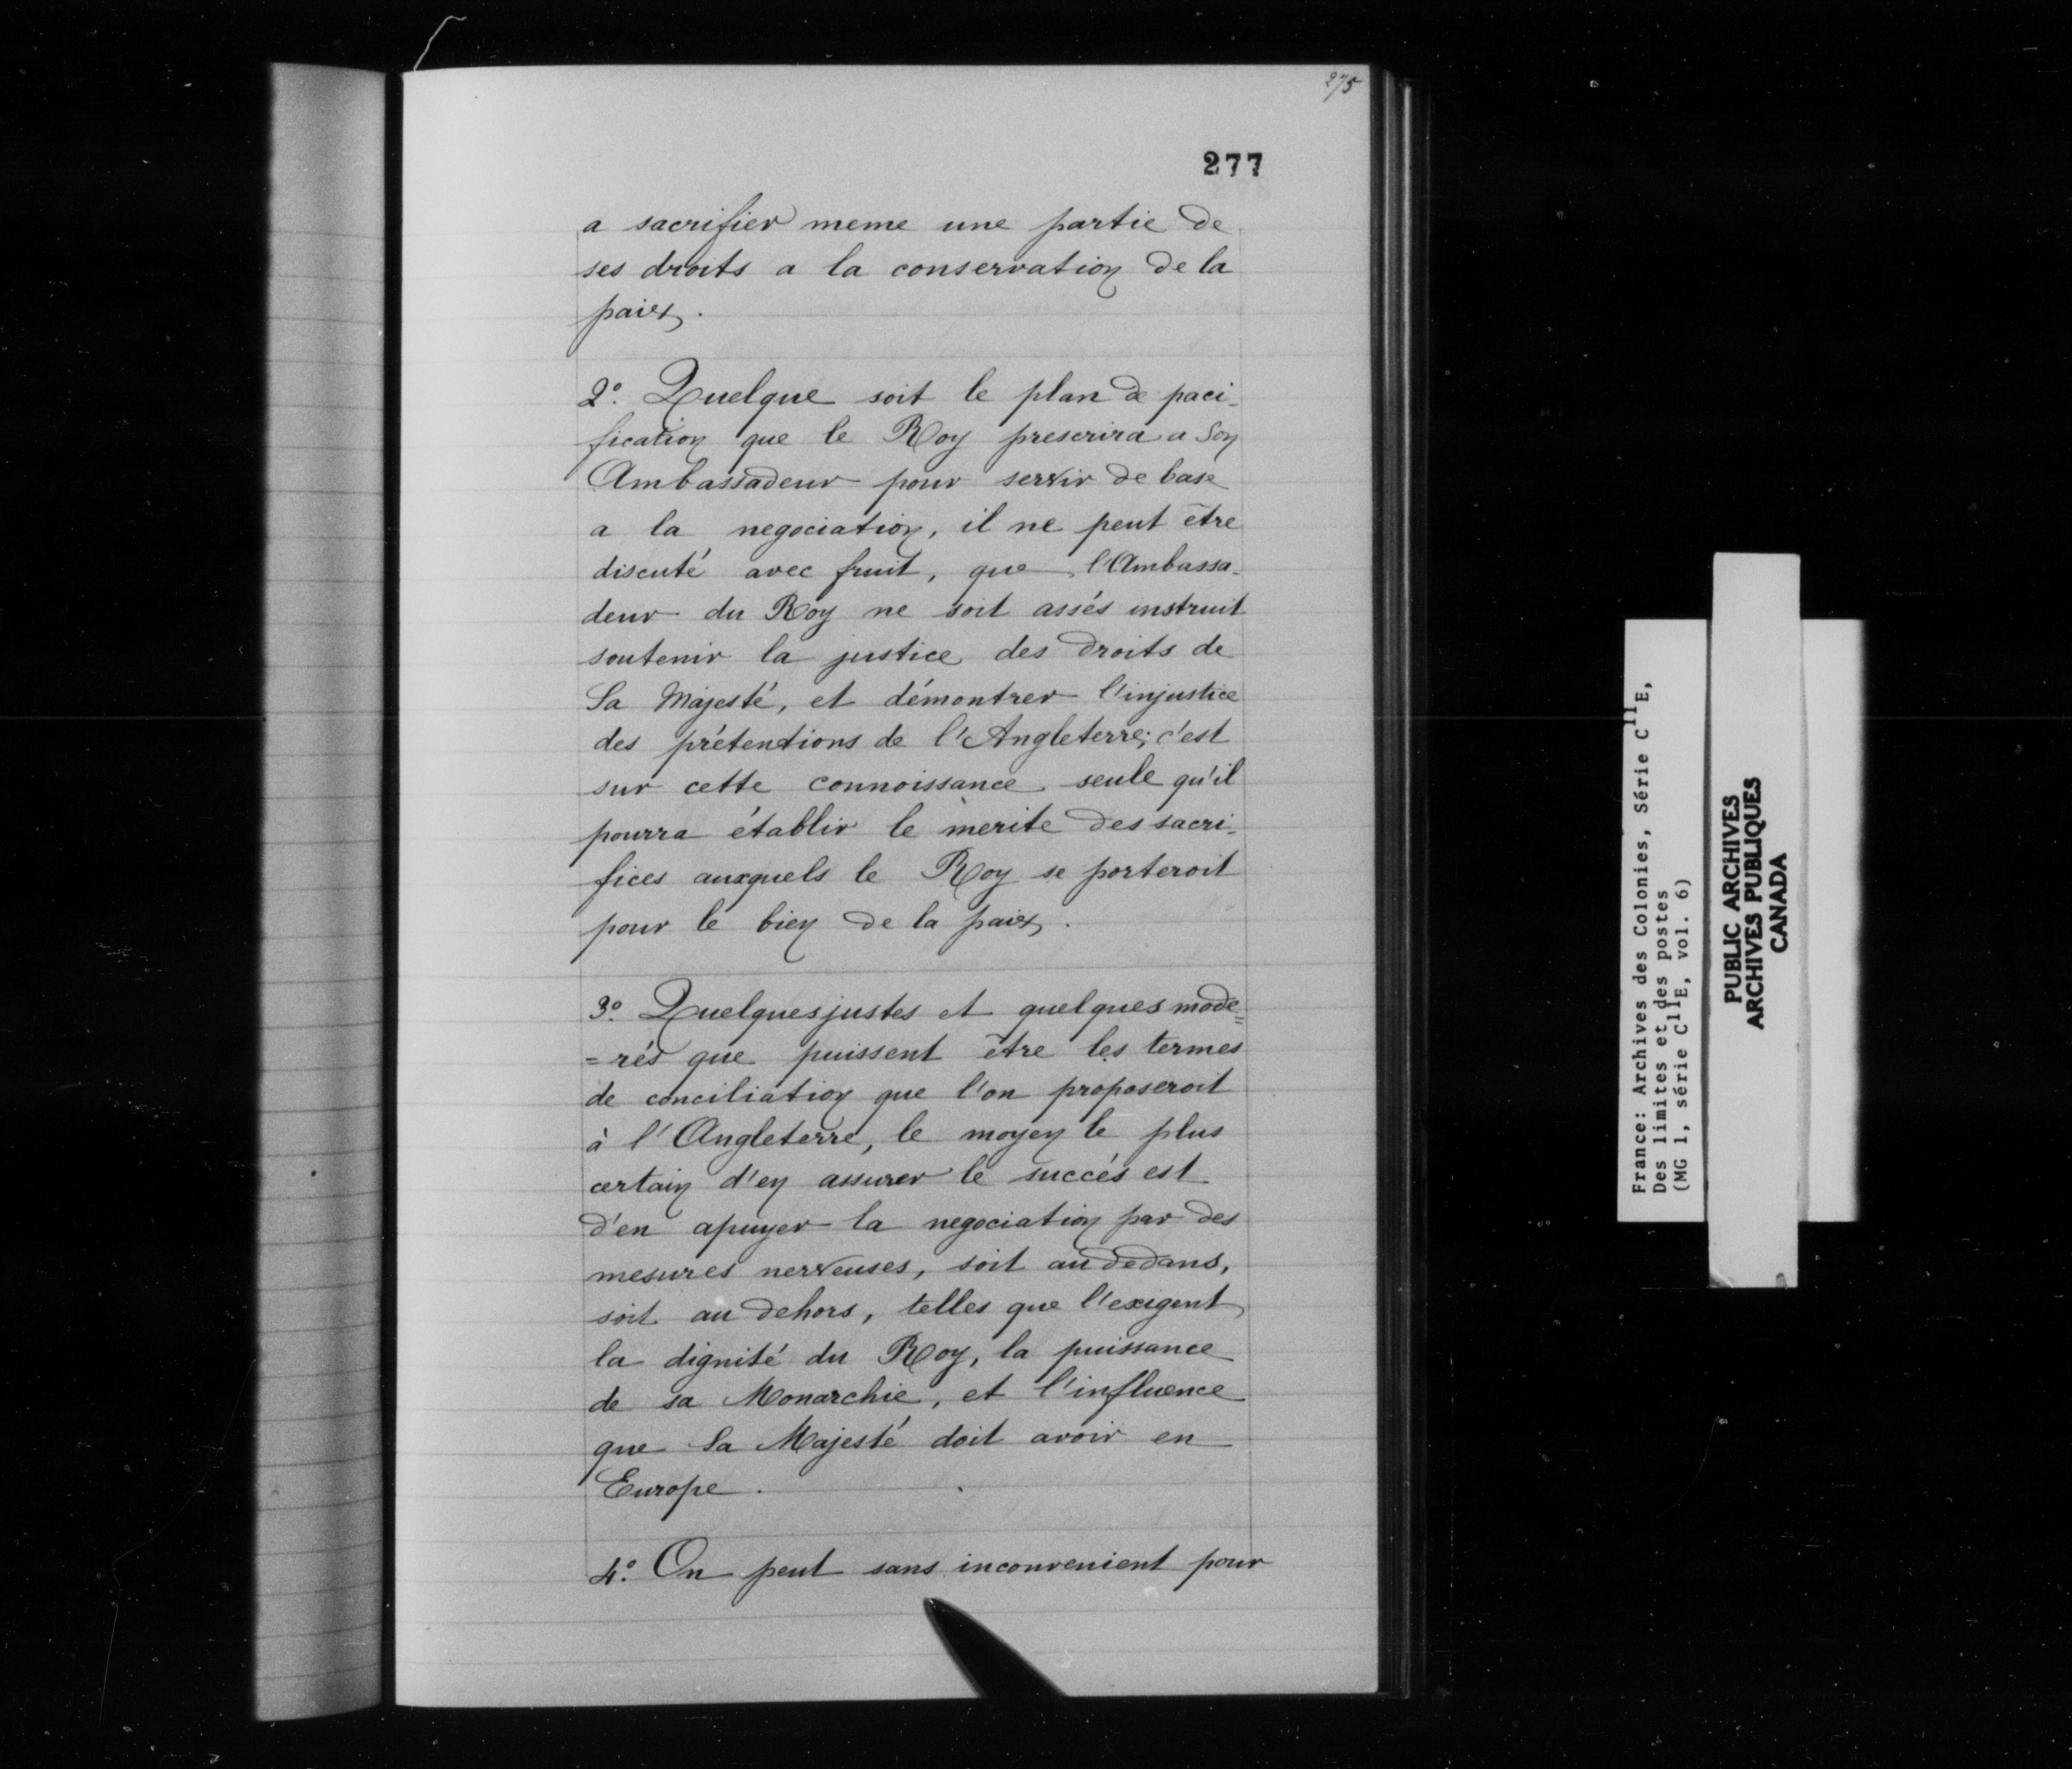 275
277
a sacrifier meme une partie de
ses droits a la conservation de la
paix.
2.º Quelque soit le plan de paci-
fication que le Roy prescrira a Son
Ambassadeur pour servir de base
a la negociation, il ne peut être
discuté avec fruit, que l'Ambassa-
deur du Roy ne soit assés instruit
soutenir la justice des droits de
Sa Majesté, et démontrer l'injustice
des prétentions de l'Angleterre; c'est
sur cette connoissance seule qu'il
pourra établir le merite des sacri-
fices auxquels le Roy se porteroit
pour le bien de la paix.
3.º Quelques justes et quelques mode=
=rés que puissent être les termes
de conciliation que l'on proposeroit
à l'Angleterre, le moyen le plus
certain d'en assurer le succés est
d'en apuyer la negociation par des
mesures nerveuses, soit au dedans,
soit au dehors, telles que l'exigent
la dignité du Roy, la puissance
de sa Monarchie, et l'influence
que Sa Majesté doit avoir en
Europe.
4.º On peut sans inconvenient pour
France: Archives des Colonies, Série C11E,
Des limites et des postes
(MG 1, série C11E, vol. 6)
PUBLIC ARCHIVES
ARCHIVES PUBLIQUES
CANADA